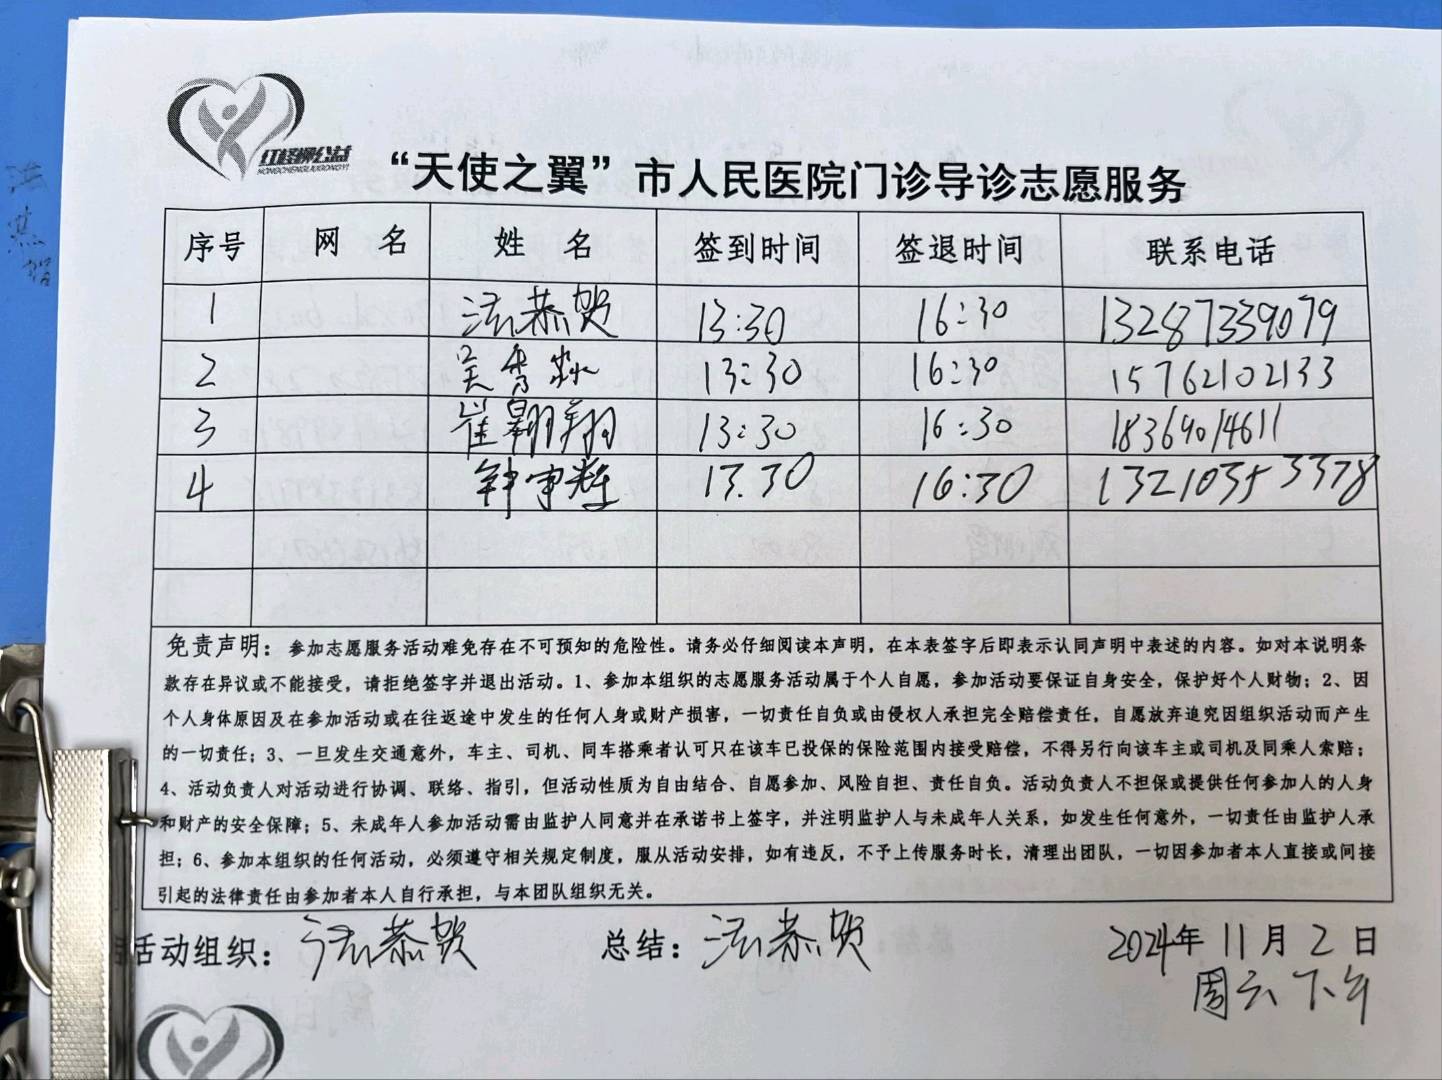 红柽柳公益
HONGCHENGLIUGONGYI
“天使之翼”市人民医院门诊导诊志愿服务
序号 网 名 姓 名 签到时间 签退时间 联系电话
1 法恭贺 13:30 16:30 13287339079
2 吴秀淼 13:30 16:30 15762102133
3 崔翱翔 13:30 16:30 18369014611
4 钟军辉 13.30 16:30 13210353378
免责声明：参加志愿服务活动难免存在不可预知的危险性。请务必仔细阅读本声明，在本表签字后即表示认同声明中表述的内容。如对本说明条
款存在异议或不能接受，请拒绝签字并退出活动。1、参加本组织的志愿服务活动属于个人自愿，参加活动要保证自身安全，保护好个人财物；2、因
个人身体原因及在参加活动或在往返途中发生的任何人身或财产损害，一切责任自负或由侵权人承担完全赔偿责任，自愿放弃追究因组织活动而产生
的一切责任；3、一旦发生交通意外，车主、司机、同车搭乘者认可只在该车已投保的保险范围内接受赔偿，不得另行向该车主或司机及同乘人索赔；
4、活动负责人对活动进行协调、联络、指引，但活动性质为自由结合、自愿参加、风险自担、责任自负。活动负责人不担保或提供任何参加人的人身
和财产的安全保障；5、未成年人参加活动需由监护人同意并在承诺书上签字，并注明监护人与未成年人关系，如发生任何意外，一切责任由监护人承
担；6、参加本组织的任何活动，必须遵守相关规定制度，服从活动安排，如有违反，不予上传服务时长，清理出团队，一切因参加者本人直接或间接
引起的法律责任由参加者本人自行承担，与本团队组织无关。
活动组织：法恭贺 总结：法恭贺 2024年 11 月 2 日
周六下午